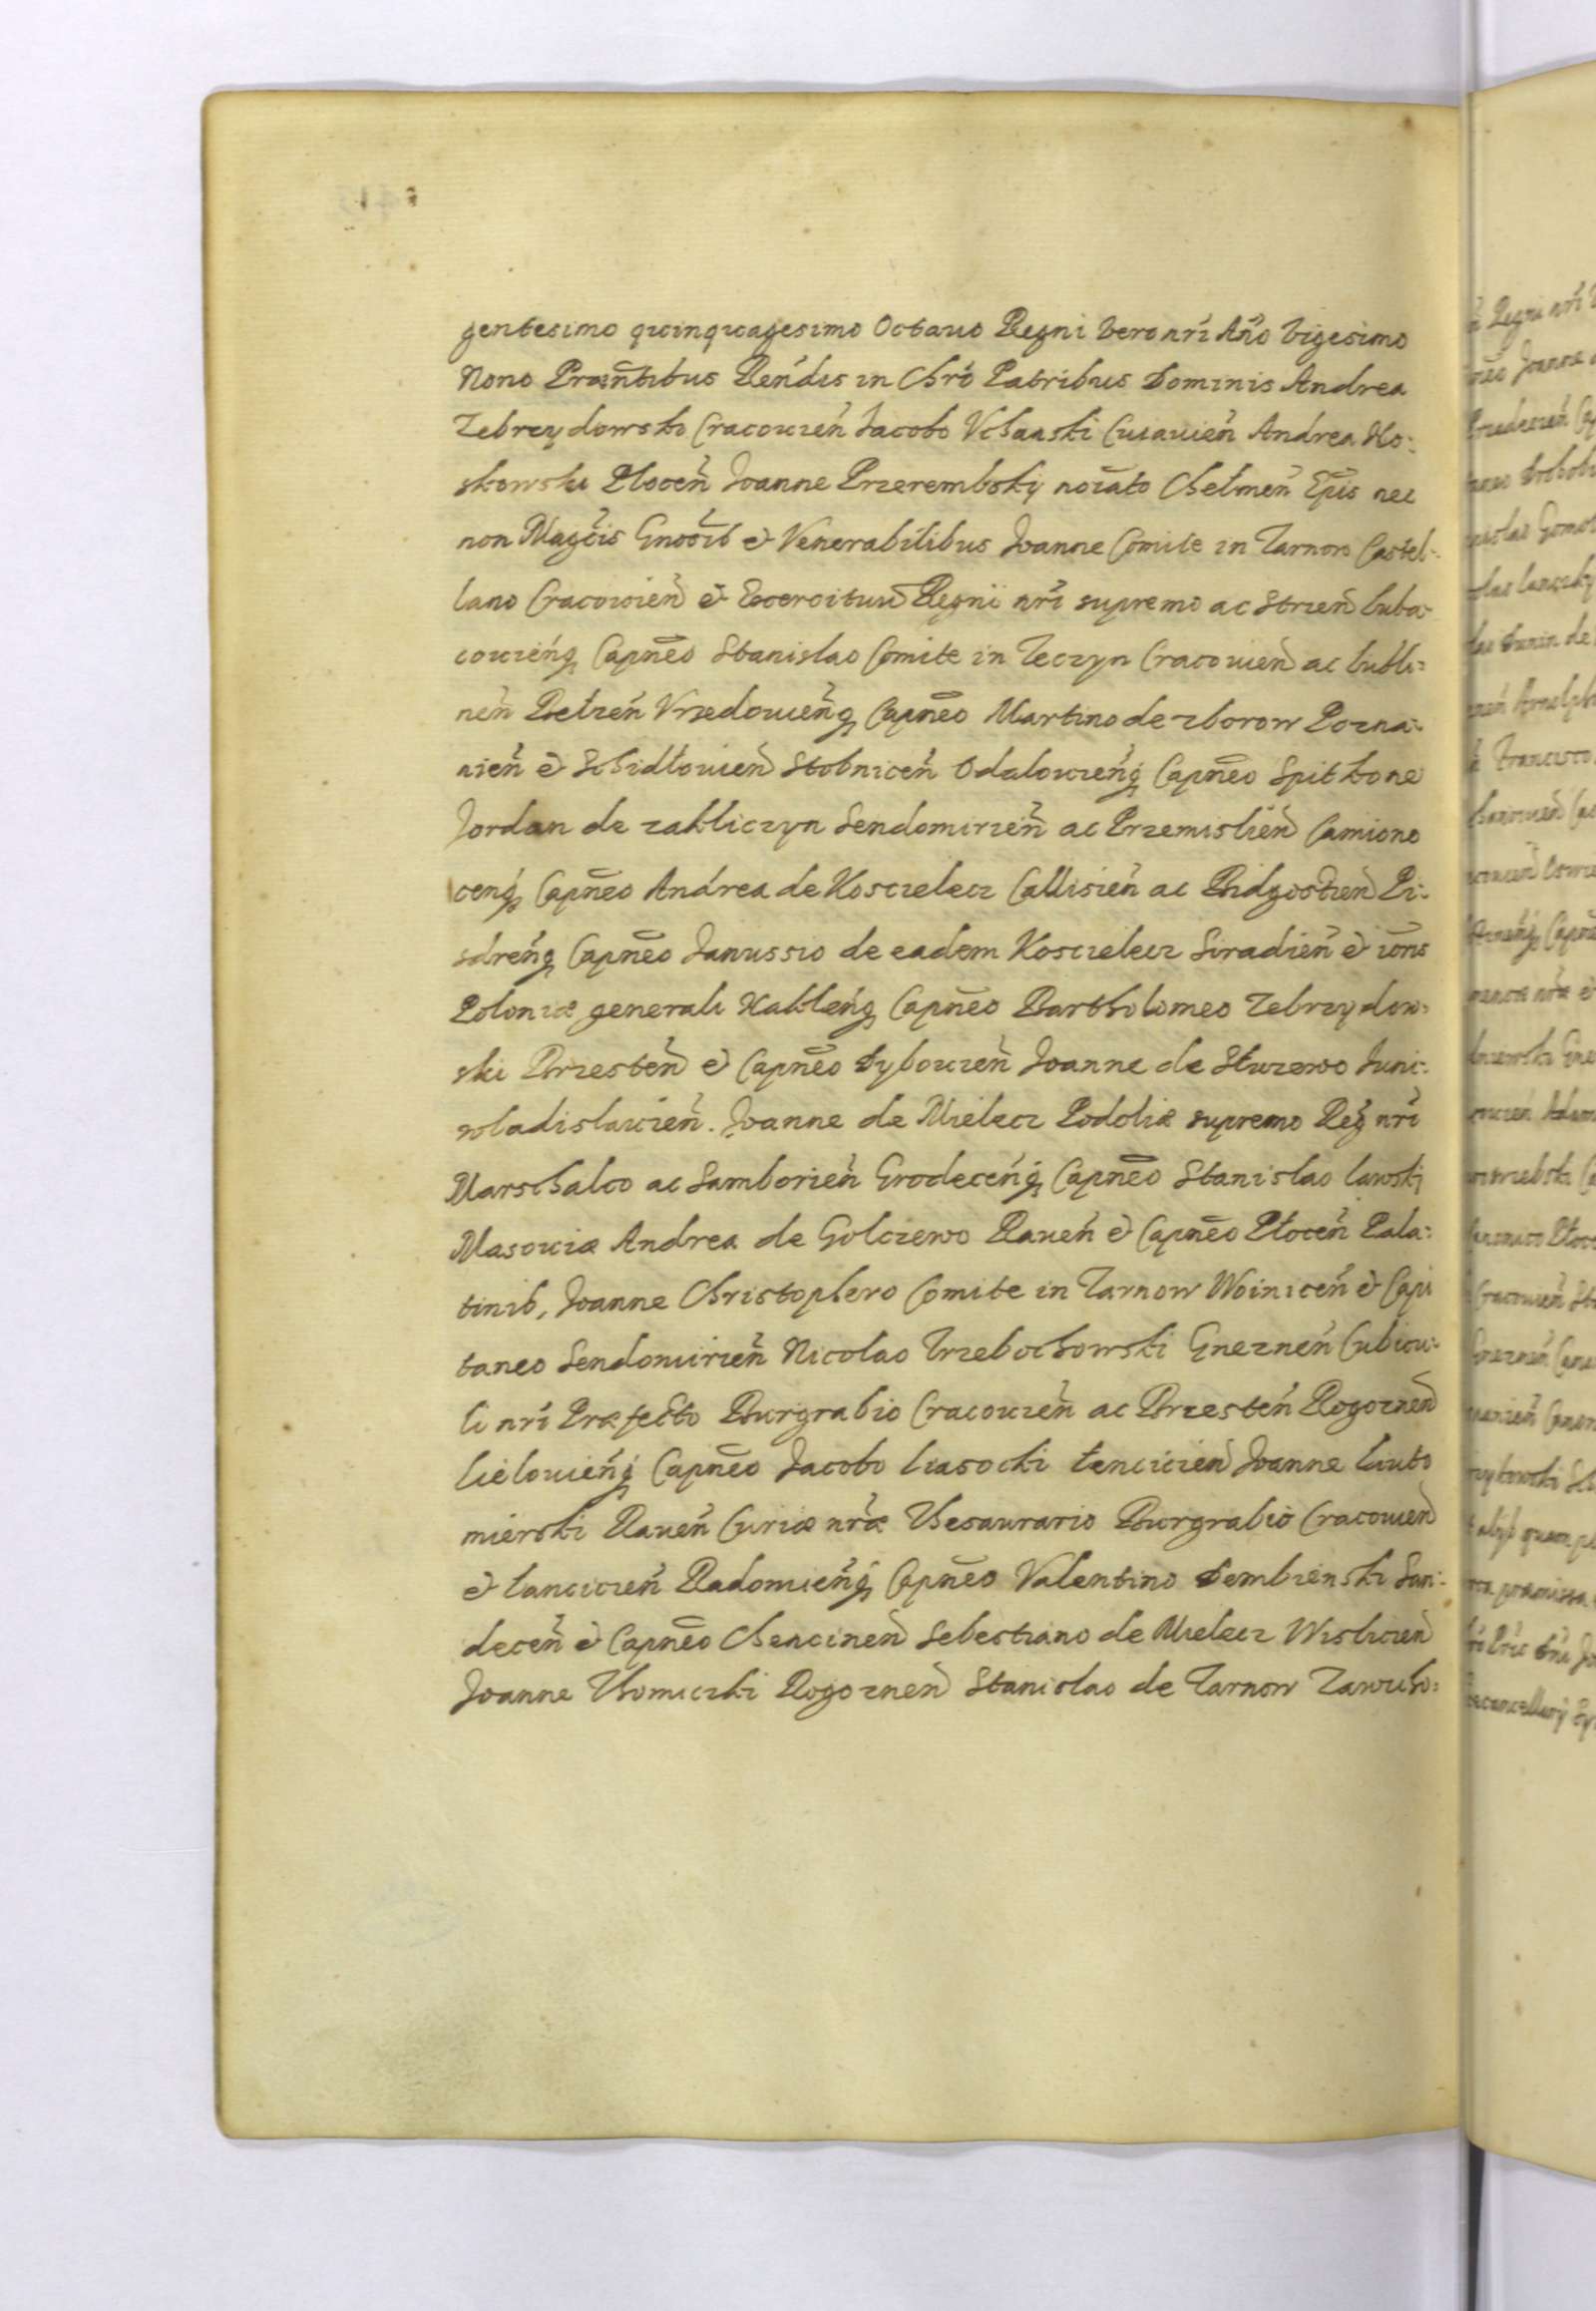 gentesimo quinquagesimo Octauo Regni vero nrĩ Año vigesimo
Nono Præntibus Reñdis in Chrõ Patribus Dominis Andrea
Zebrzydowsko Cracouień Jacobo Vchanski Cuiauień Andrea No:
skowski Płoceń Joanne Przerembsky noĩato Chełmeń Ep̃is nec
non Mag̃cis Gnõsib et Venerabilibus Joanne Comite in Tarnow Castel:
lano Cracouień et Exercituũ Regni nrĩ supremo ac Strień Luba:
couieńq Capñeo Stanislao Comite in Teczyn Cracouień ac Lubli:
neń Bełzeń Vrzedouieńq Capñeo Martino de Zborow Pozna:
nień et Schidłouień Stobniceń Odalouieńq Capñeo Spitkone
Jordan de Zakliczyn Sendomirień ac Przemislień Camiono
ceńq Capñeo Andrea de Koscielecz Callisień ac Bidgostień Pi:
sdreńq Capñeo Janussio de eadem Koscielecz Siradień et
Poloniæ generali Nakleńq Capñeo Bartholomeo Zebrzydow:
ski Brzesteń et Capñeo Dybouień Joanne de Słuzewo Juni:
wladislauień. Joanne de Mielecz Podoliæ supremo Reg nrĩ
Marschalco ac Samborień Grodeceńq Capñeo Stanislao Lawski
Masouiæ Andrea de Golczewo Raueń et Capñeo Płoceń Pala:
tinib, Joanne Christophero Comite in Tarnow Woiniceń et Capi
taneo Sendomirień Nicolao Trzebochowski Gnezneń Cubicu:
li nrĩ Præfecto Burgrabio Cracouień ac Brzesteń Rogozneń
Lielouieńq Capñeo Jacobo Liasocki Łencicień Joanne Liuto
mierski Raueń Curiæ nræ̃ Thesaurario Burgrabio Cracouień
et Lancicień Radomieńq Capñeo Valentino Dembienski San:
deceń et Capñeo Chencineń Sebestiano de Mielecz Wislicień
Joanne Thomiczki Rogozneń Stanislao de Tarnow Zawicho: